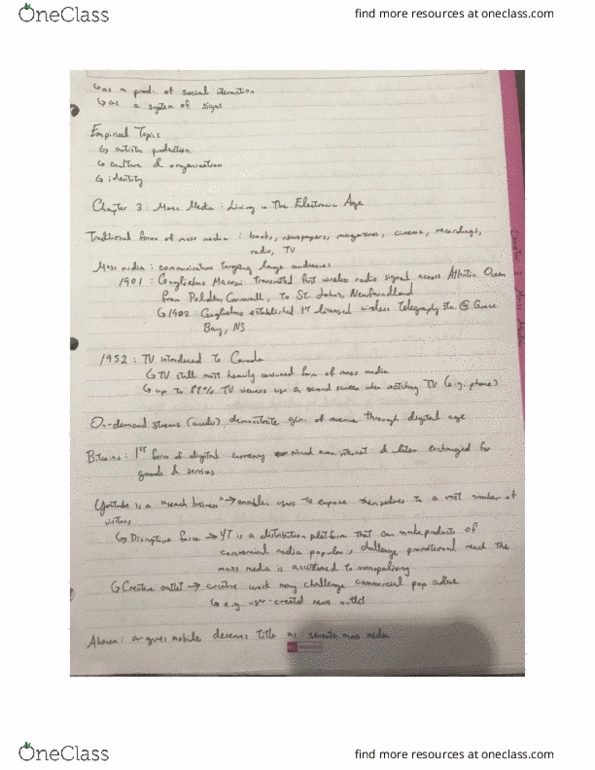 OneClass
find more resources at oneclass.com
↳ as a prod. of social interaction
↳ as a system of signs
Empirical Topics
↳ artistic production
↳ culture & organization
↳ identity
Chapter 3: Mass Media: Living in The Electronic Age
Traditional forms of mass media: books, newspapers, magazines, cinema, recordings,
radio, TV
Mass media: communication targeting large audiences
1901: Guglielmo Marconi transmitted first wireless radio signal across Atlantic Ocean
from Poldhu Cornwall, to St. Johns, Newfoundland
↳ 1902: Guglielmo established 1st licensed wireless telegraphy stn @ Grace
Bay, NS
1952: TV introduced to Canada
↳ TV still most heavily consumed form of mass media
↳ up to 87% TV viewers use a second screen when watching TV (e.g. phone)
On-demand streams (audio) demonstrate gen. of revenue through digital age
Bitcoins: 1st form of digital currency mined over internet & later exchanged for
goods & services
Youtube is a "search business" → enables users to expose themselves to a vast number of
visitors
↳ Disruptive force → YT is a distribution platform that can make products of
commercial media popular & challenge promotional reach the
mass media is accustomed to monopolizing
↳ Creative outlet → creative work may challenge commercial pop culture
↳ e.g. user-created news outlet
Ahonen: argues mobile deserves title as seventh mass media
OneClass
find more resources at oneclass.com